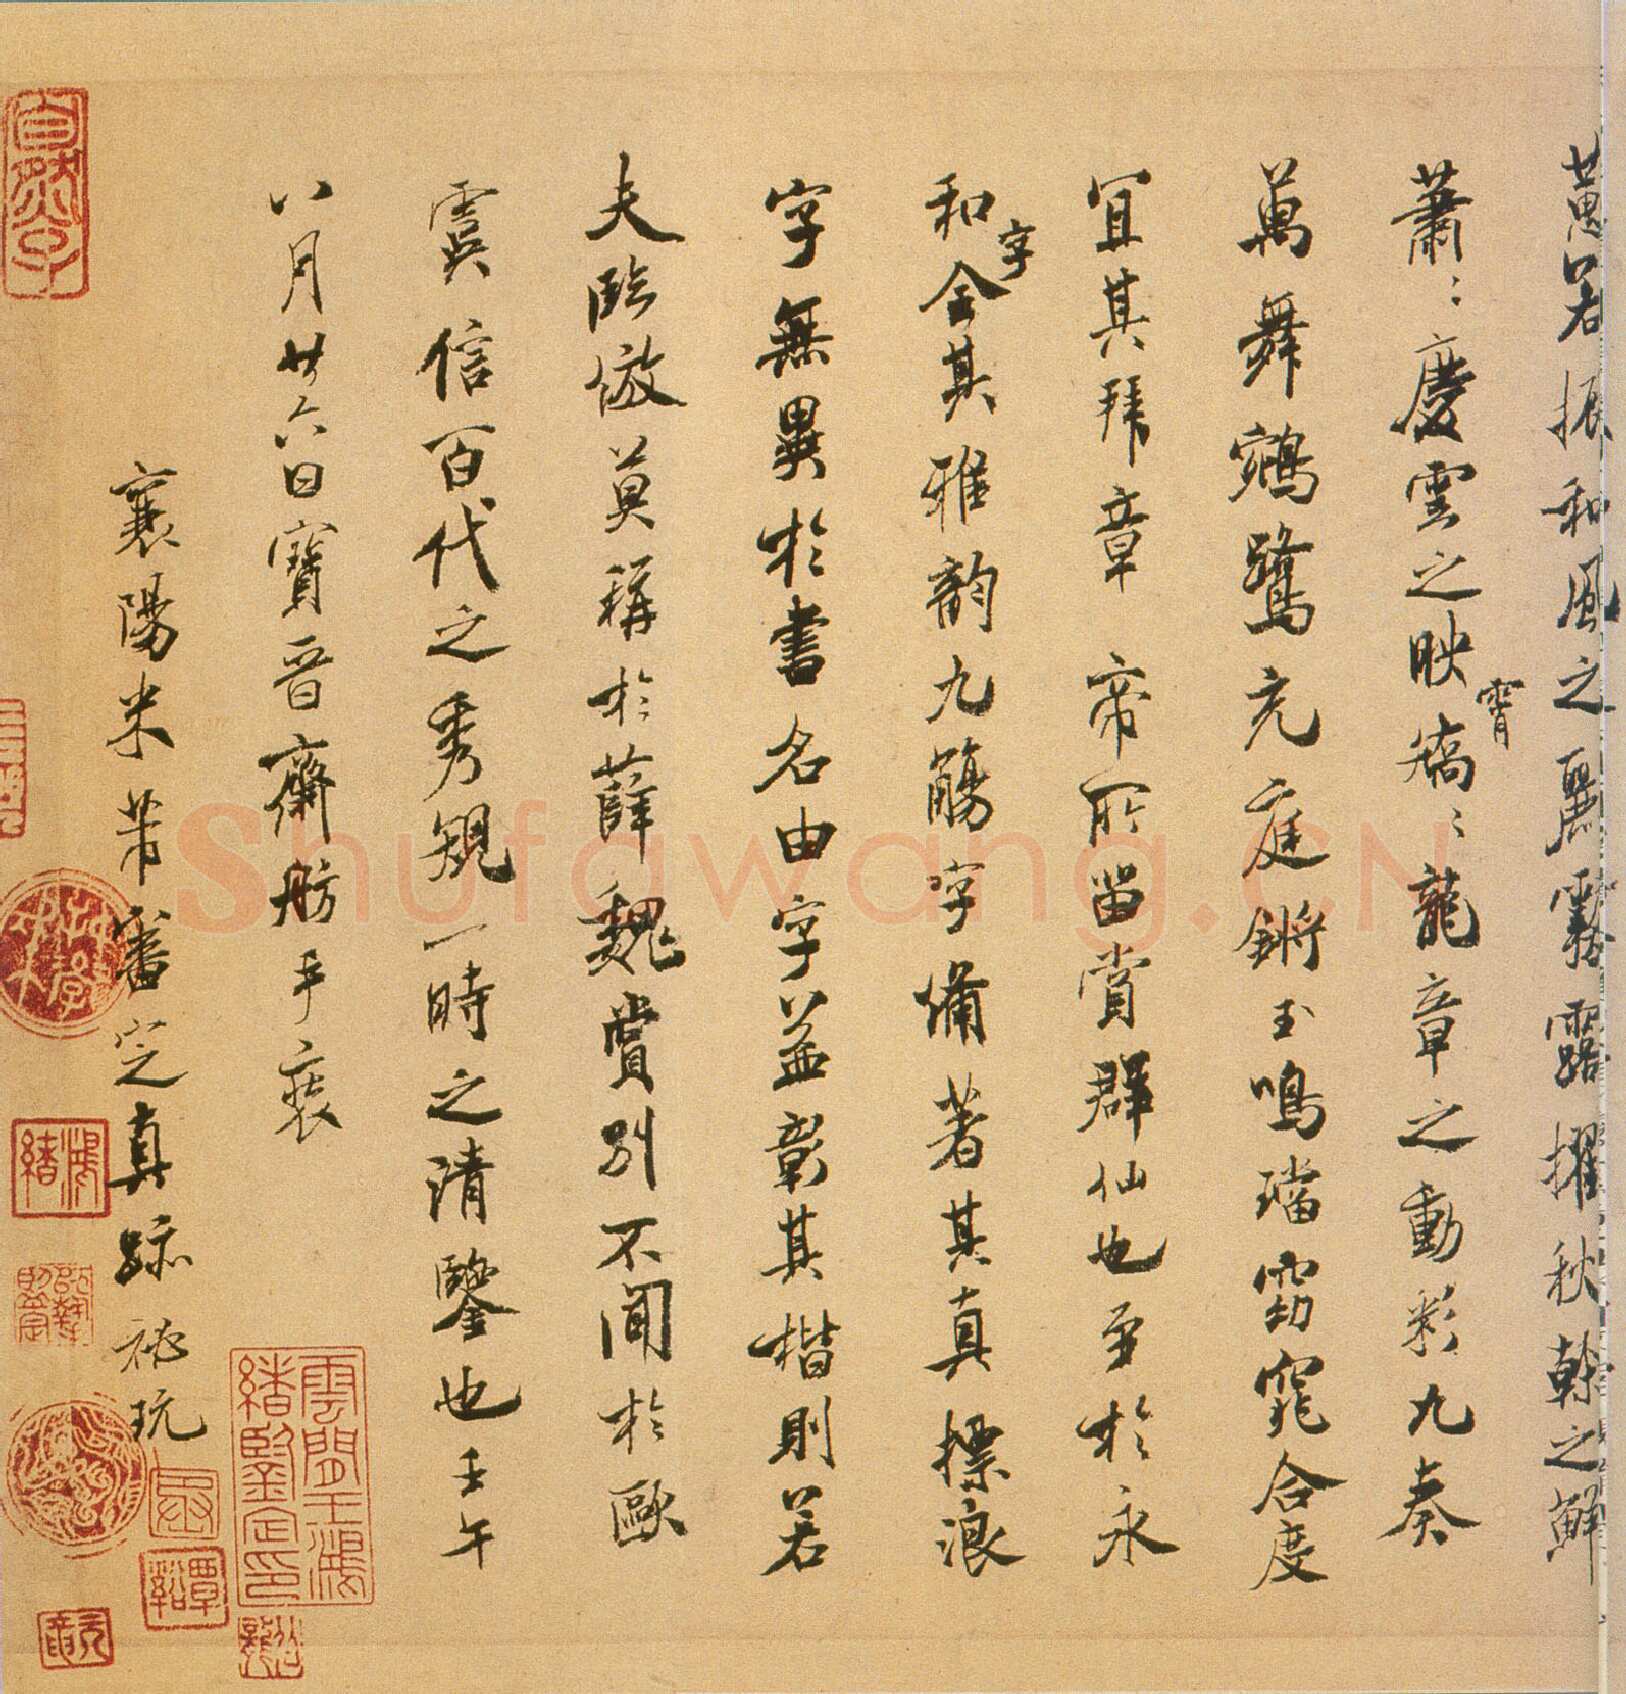 蕙若振和風之麗霧露擢秋幹之鮮
蕭〻慶雲之映霄矯〻龍章之動彩九奏
萬舞鵷鷺充庭鏘玉鳴璫窈窕合度
宜其拜章帝所留賞群仙也至於永
和字全其雅韵九觴字備著其真標浪
字無異於書名由字益彰其楷則若
夫臨倣莫稱於薛魏賞別不聞於歐
虞信百代之秀規一時之清鑒也壬午
八月廿六日寶晉齋舫手裝
襄陽米芾審定真跡秘玩
Shufawang.CN